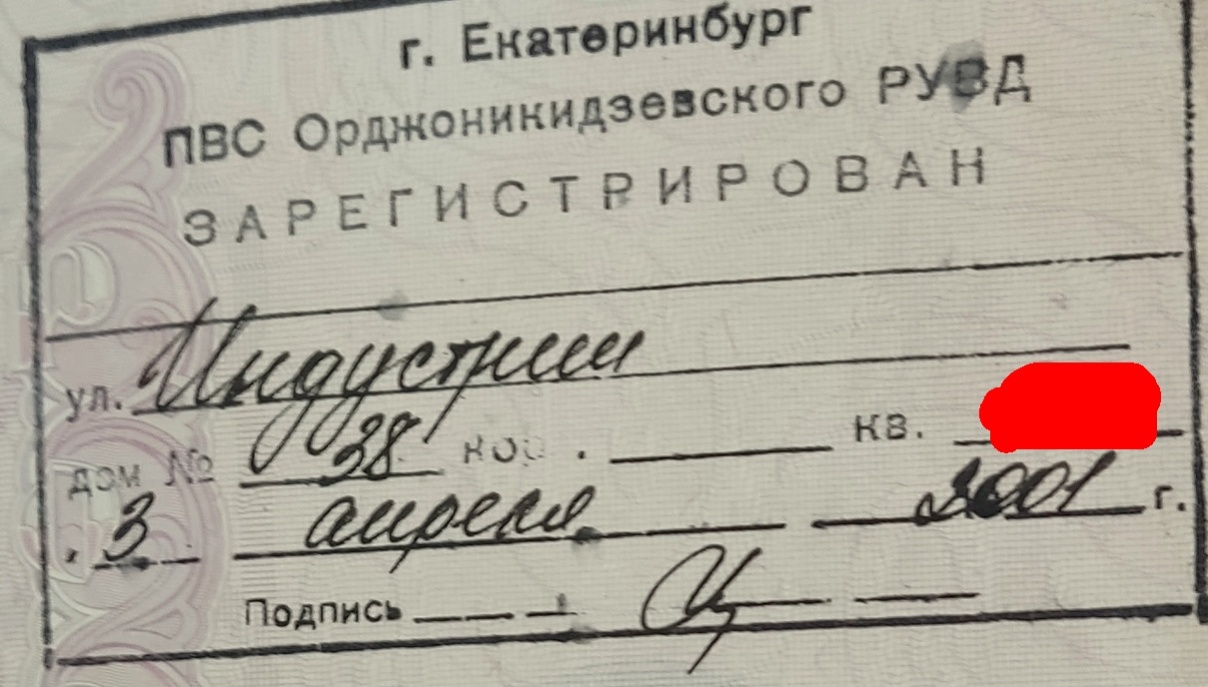 г. Екатеринбург
ПВС Орджоникидзевского РУВД
ЗАРЕГИСТРИРОВАН
ул. Индустрии
дом № 38 кор. кв.
3 апреля 2001 г.
Подпись